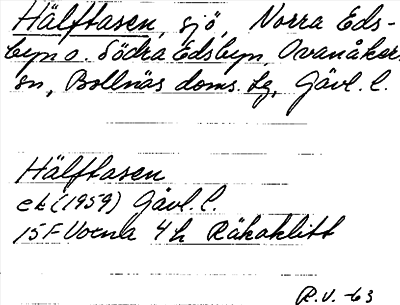 Hälftasen, sjö, Norra Eds-
byn o. Södra Edsbyn, Ovanåker
sn, Bollnäs doms. lg, Gävl. l.
Hälftasen
ek (1959) Gävl. l.
15F Voxna 4h Räkaklitt
R.V. -63